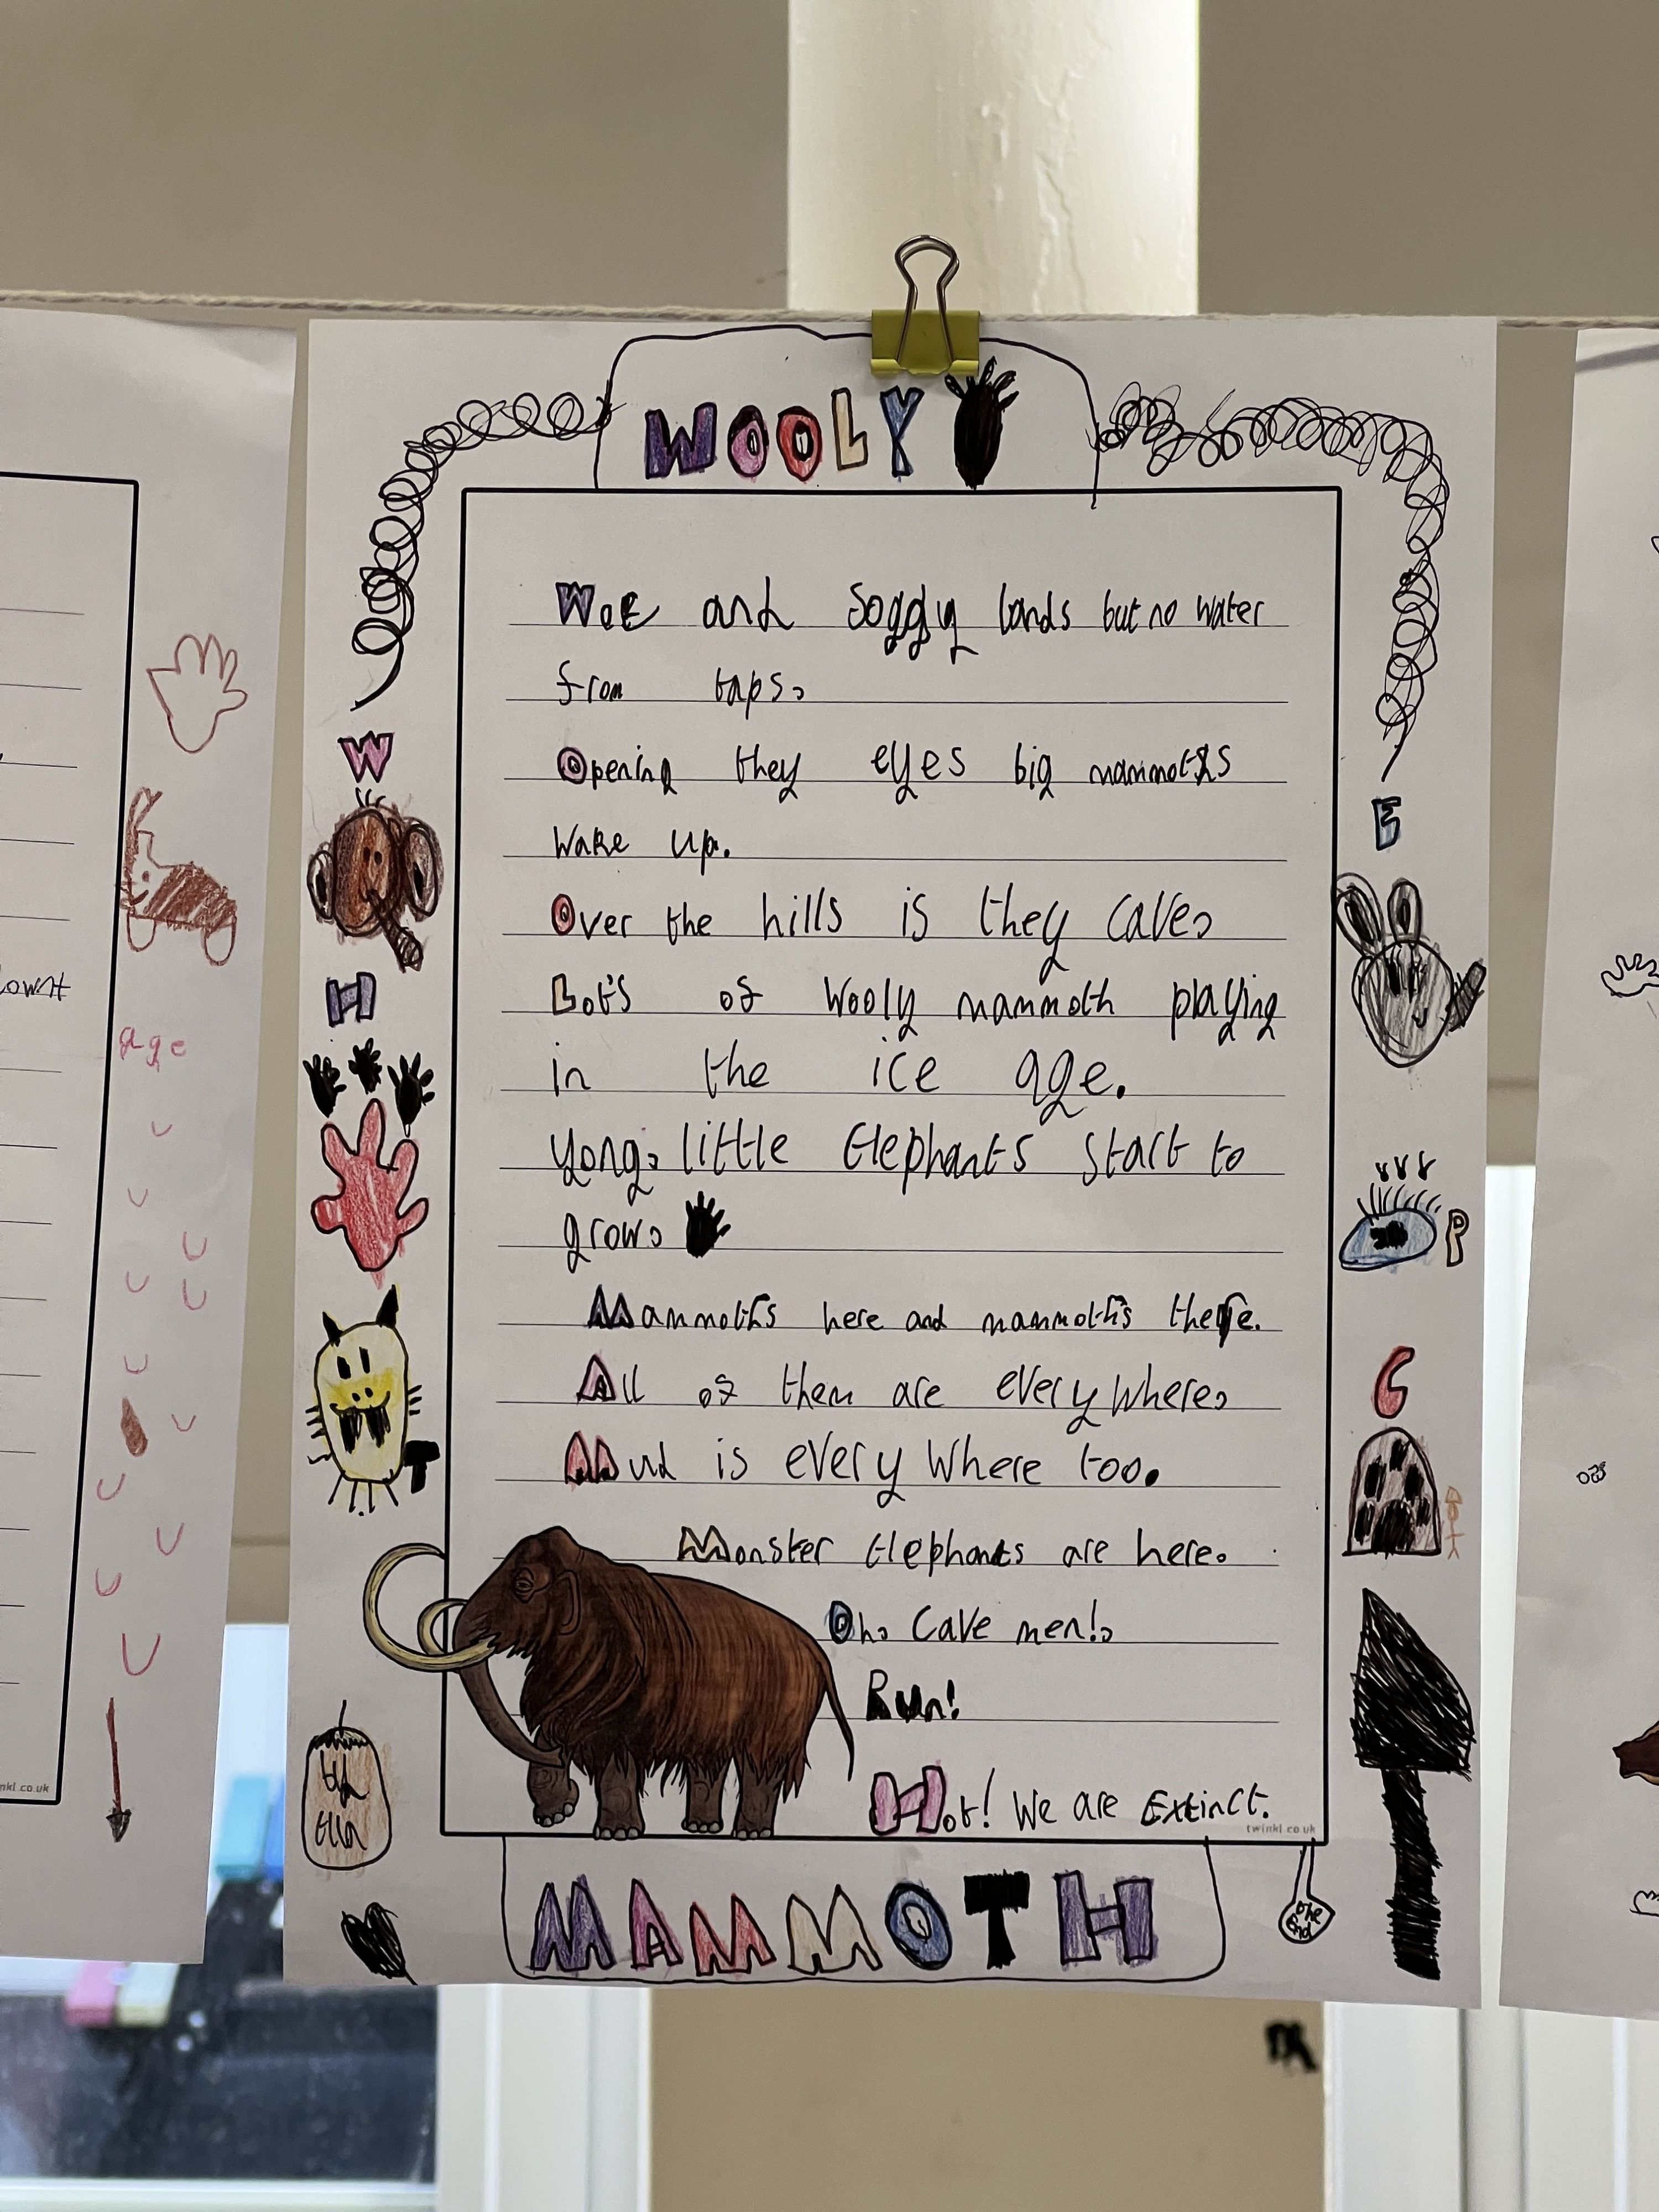 WOOLY
Wet and soggy lands but no water
from taps.
Opening they eyes big mammoths
wake up.
Over the hills is they cave.
Lot's of wooly mammoth playing
in the ice age.
yong. little Elephants start to
grow.
Mammoth's here and mammoth's there.
All of them are every where.
Mud is every where too.
Monster Elephants are here.
Oh. Cave men!.
Run!
Hot! We are Extinct.
twinkl.co.uk
MAMMOTH
the
End
W
H
T
E
P
C
lownt
age
nkl.co.uk